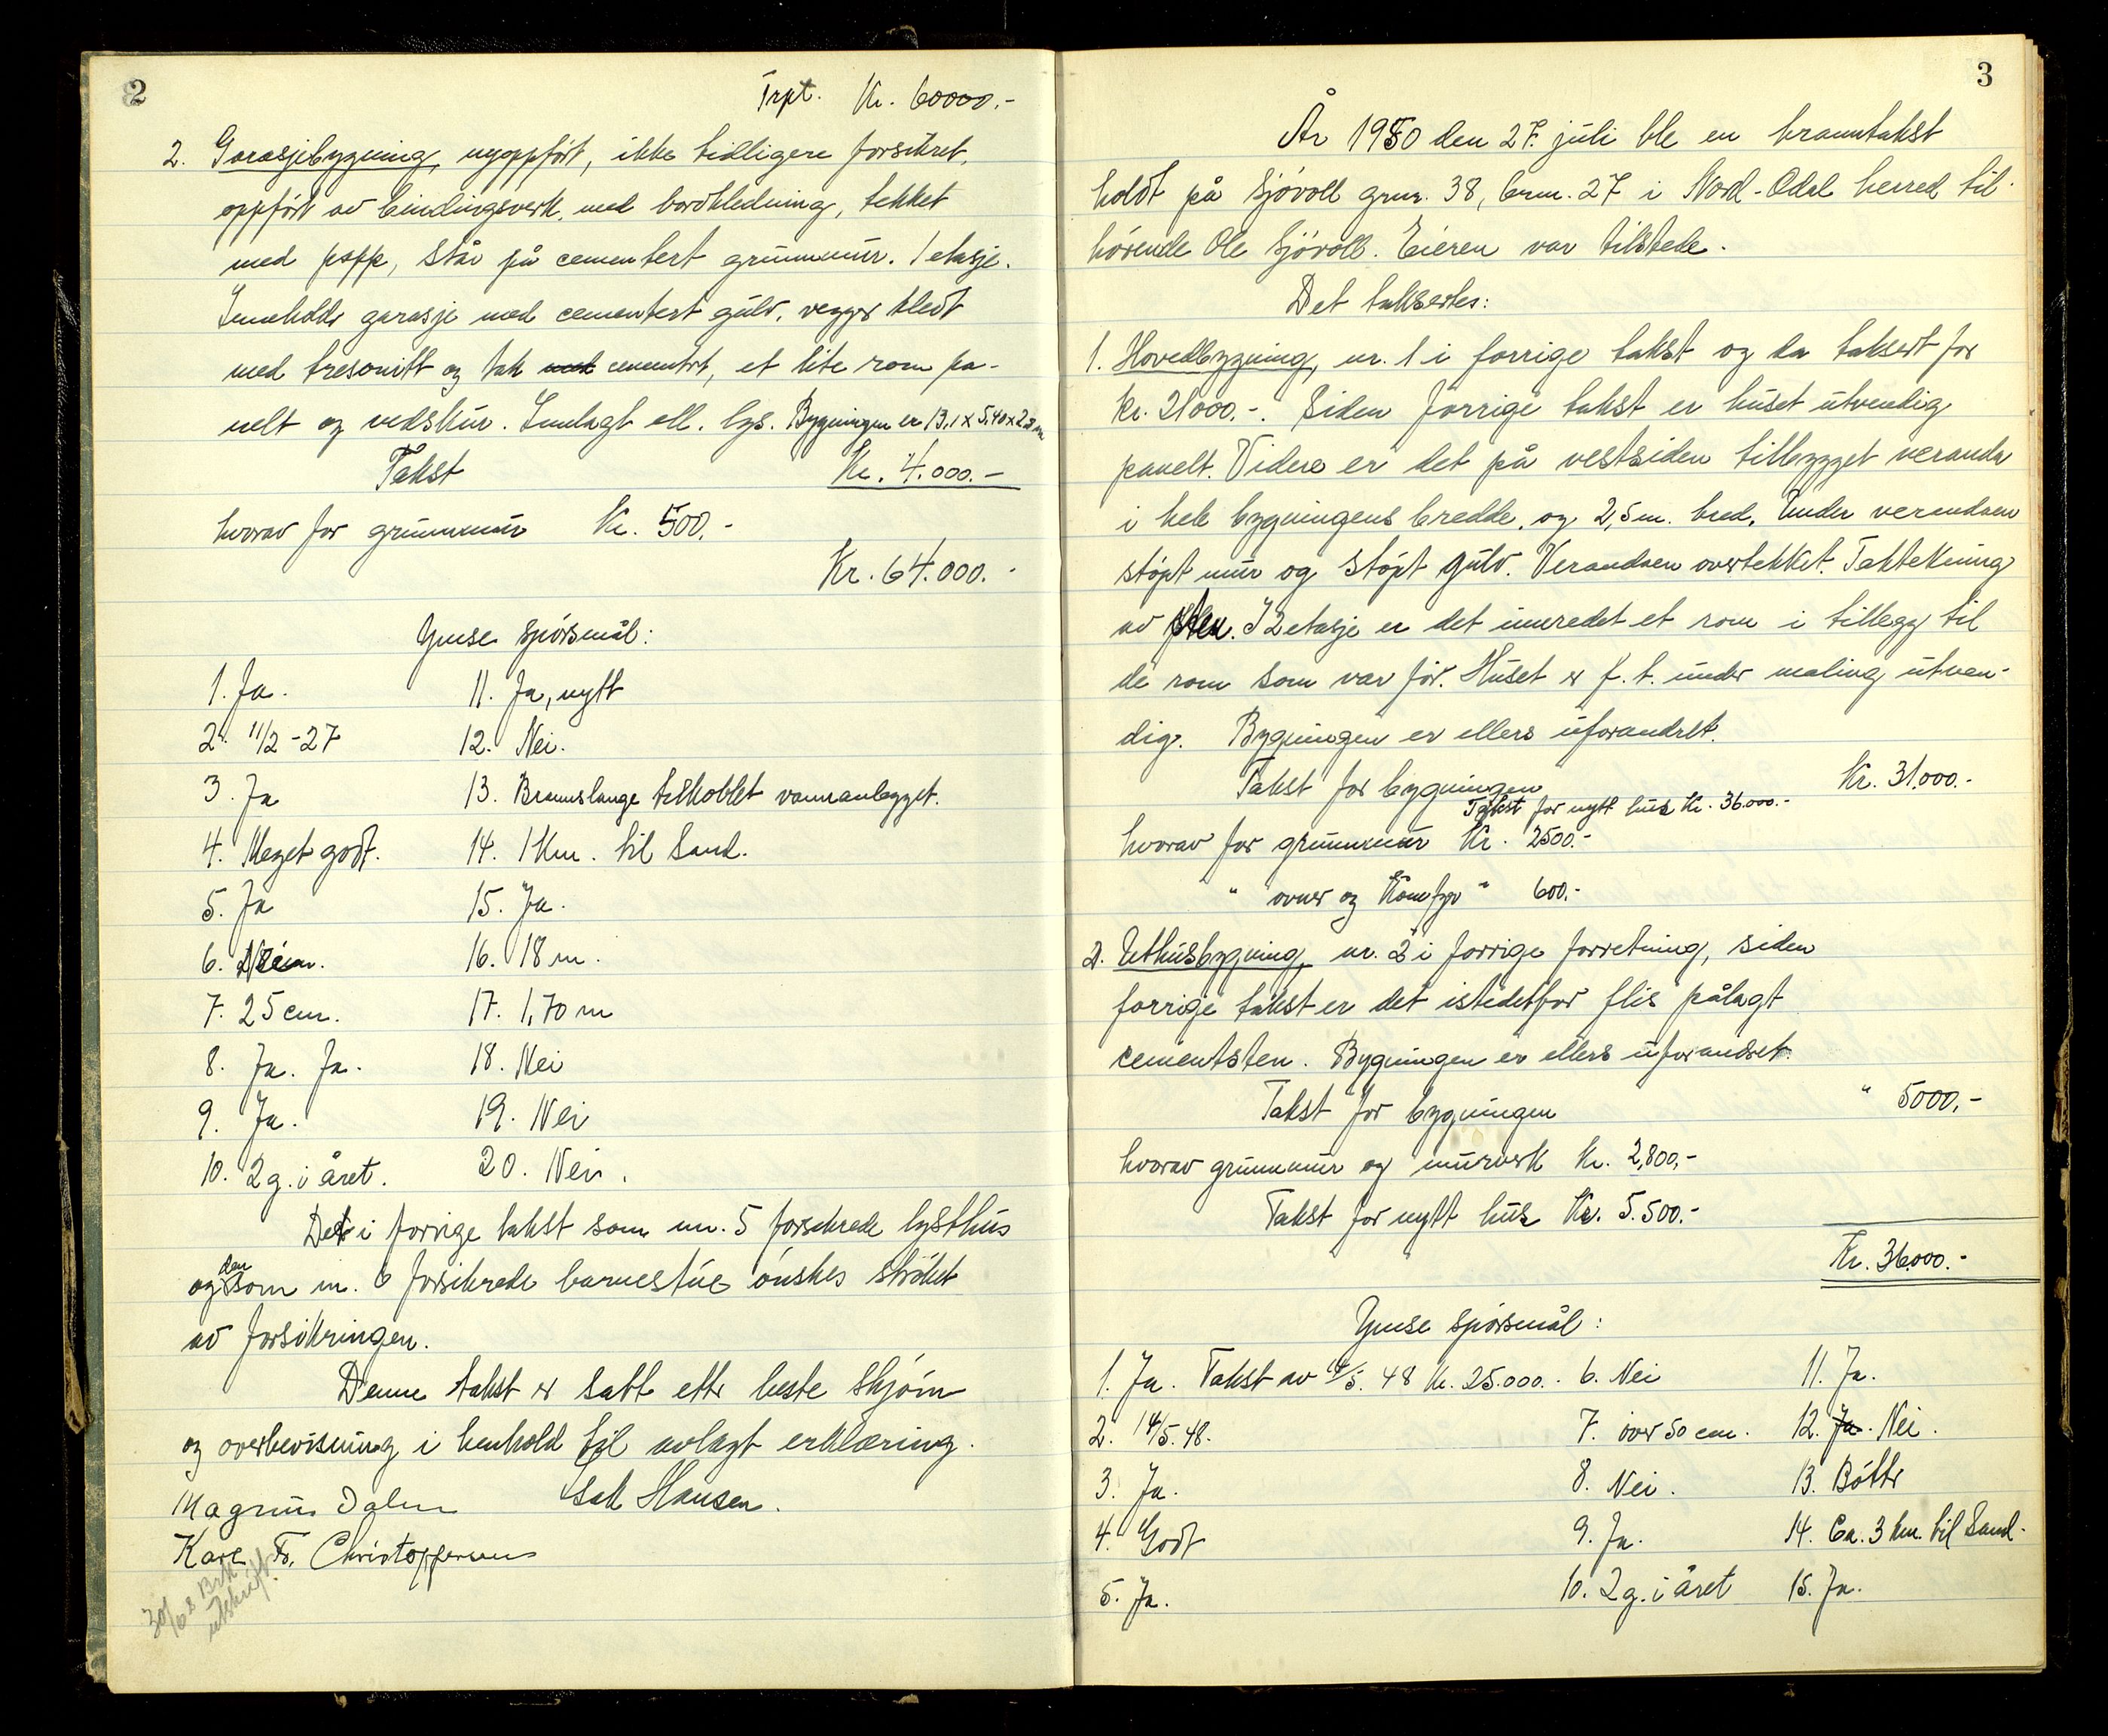 2
Trpt. Kr. 60000.-
2. Garasjebygning, nyoppført, ikke tidligere forsikret,
oppført av bindingsverk, med bordkledning, tekket
med papp, står på cementert grunnmur. 1 etasje.
Inneholdr garasje med cementert gulv, vegger kledt
med tresonitt og tak med cementrt, et lite rom pa-
nelt og vedskur. Innlagt ell. lys. Bygningen er 13,1 x 5,40 x 2,2 m
Takst Kr. 4.000.-
hvorav for grunnmur Kr. 500.-
Kr. 64.000.-
Ymse spørsmål:
1. Ja. 11. Ja, nytt
2. 11/2 -27 12. Nei.
3. Ja 13. Brannslange tilkoblet vannanlegget.
4. Meget godt. 14. 1 Km. til Sand.
5. Ja 15. Ja.
6. 16. 18 m.
7. 25 cm. 17. 1,70 m
8. Ja. Ja. 18. Nei
9. Ja. 19. Nei
10. 2 g. i året. 20. Nei.
Det i forrige takst som nr. 5 forsikrede lysthus
og den som nr. 6 forsikrede barnestue ønskes strøket
av forsikringen.
Denne takst er satt ettr beste skjønn
og overbevisning i henhold til avlagt erklæring.
Magnus Dalen Isak Hansen.
Kare Fr. Christoffersen
30/6 8 Brk
utskrift
3
År 1950 den 27. juli ble en branntakst
holdt på Sjøvoll grnr. 38, brnr. 27 i Nord-Odal herred til-
hørende Ole Sjøvoll. Eieren var tilstede.
Det taksertes:
1. Hovedbygning, nr. 1 i forrige takst og da taksert for
kr. 21000.-. Siden forrige takst er huset utvendig
panelt. Videre er det på vestsiden tilbygget veranda
i hele bygningens bredde, og 2,5 m. bred. Under verandaen
støpt mur og støpt gulv. Verandaen overtekket. Taktekning
av sten. I 2 etasje er det innredet et rom i tillegg til
de rom som var før. Huset er f. t. under maling utven-
dig. Bygningen er ellers uforandret.
Takst for bygningen Kr. 31.000.-
Takst for nytt hus Kr. 36.000.-
hvorav for grunnmur Kr. 2500.-
" ovner og komfyr " 600.-
2. Uthusbygning, nr. 2 i forrige forretning, siden
forrige takst er det istedetfor flis pålagt
cementsten. Bygningen er ellers uforandret.
Takst for bygningen " 5000.-
hvorav grunnmur og murverk Kr. 2,800,-
Takst for nytt hus Kr. 5.500.-
Kr. 36.000.-
Ymse spørsmål:
1. Ja. Takst av 14/5. 48 Kr. 25.000.- 6. Nei 11. Ja.
2. 14/5. 48. 7. over 50 cm. 12. Ja. Nei.
3. Ja. 8. Nei. 13. Bøttr
4. Godt 9. Ja. 14. Ca. 3 km. til Sand.
5. Ja. 10. 2 g. i året 15. Ja.